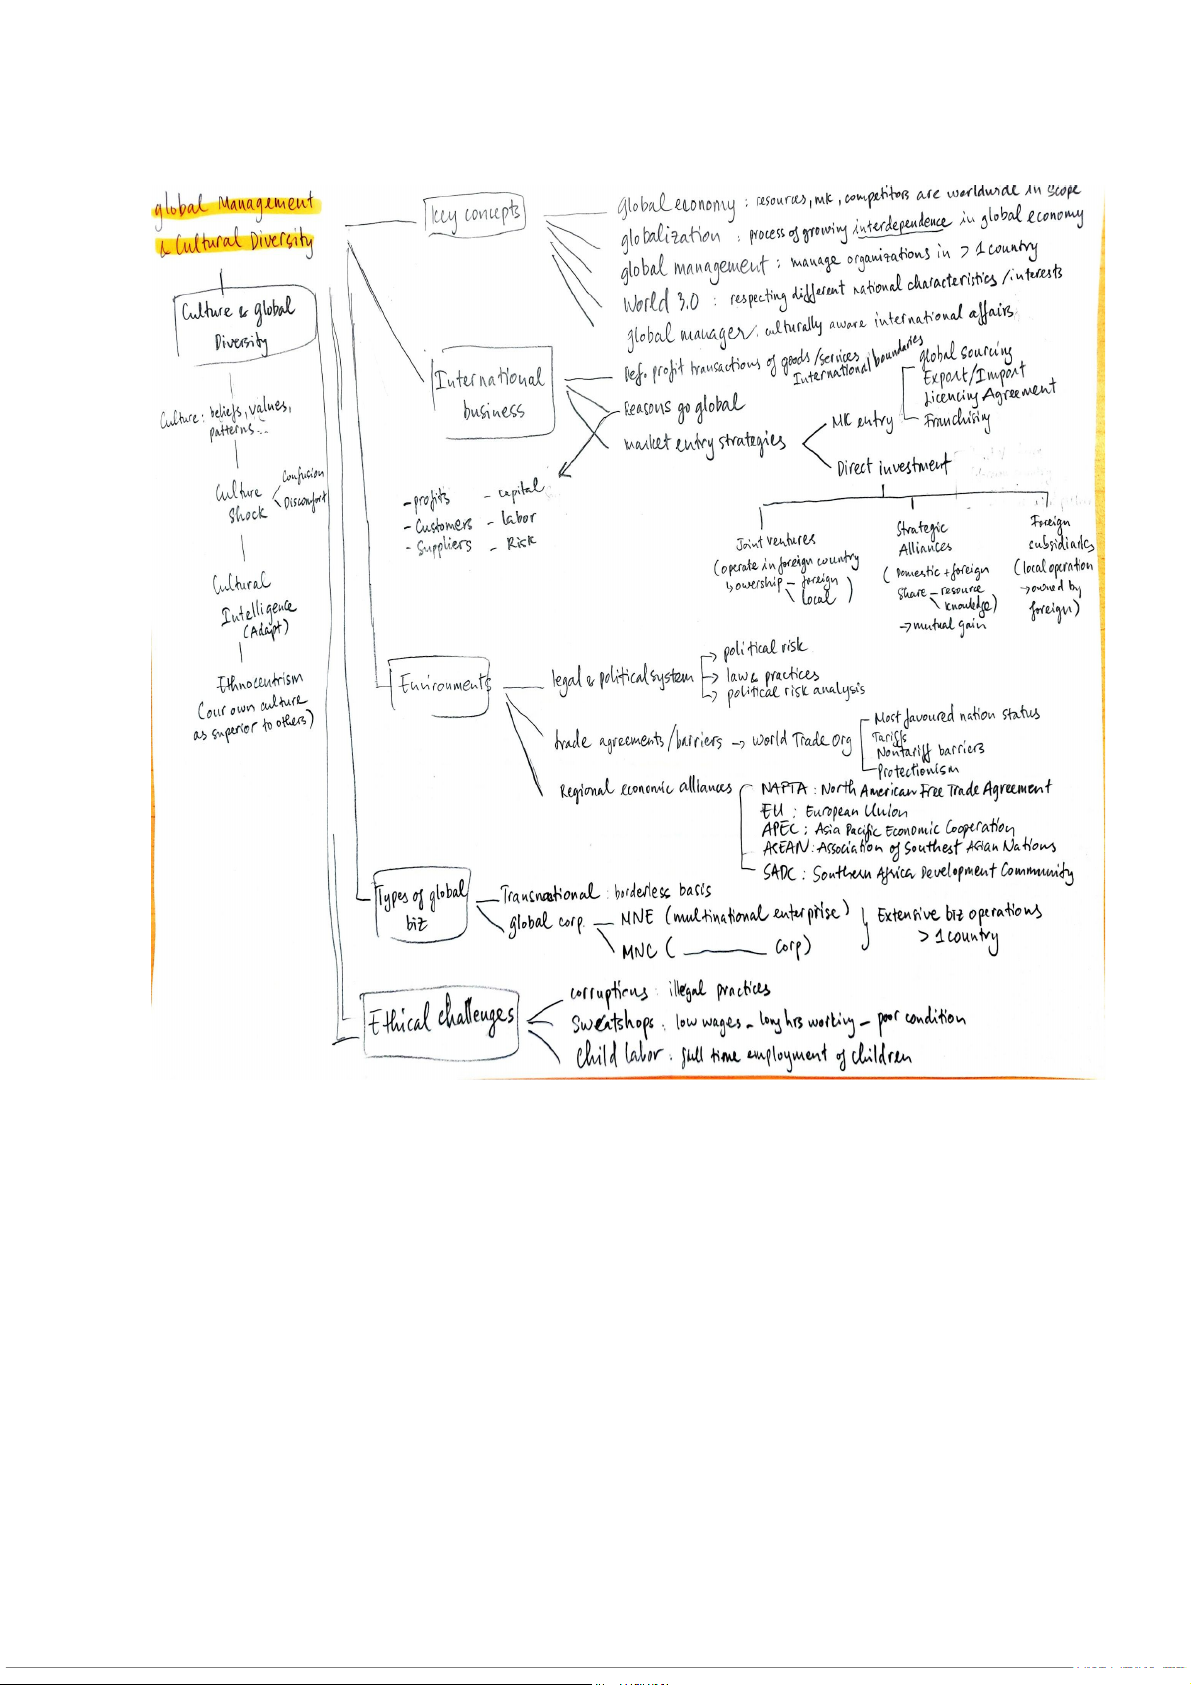 global Management
& Cultural Diversity
Key concepts
global economy : resources, MK, competitors are worldwide in scope
globalization : process of growing interdependence in global economy
global management : manage organizations in > 1 country
World 3.0 : respecting different national characteristics / interests
global manager : culturally aware international affairs
Culture & global
Diversity
Culture : beliefs, values,
patterns...
Culture
Shock
Confusion
Discomfort
Cultural
Intelligence
(Adapt)
Ethnocentrism
(our own culture
as superior to others)
International
business
Def. profit transactions of goods/services
International boundaries
Reasons go global
market entry strategies
- profits
- Customers
- Suppliers
- capital
- labor
- Risk
MK entry
global sourcing
Export/Import
Licencing Agreement
Franchising
Direct investment
Joint ventures
(operate in foreign country
↳ owership - foreign
local )
Strategic
Alliances
( Domestic + foreign
share - resource
knowledge)
→ mutual gain
Foreign
subsidiaries
(local operation
→ owned by
foreign)
Environments
legal & political system
→ political risk
→ law & practices
→ political risk analysis
trade agreements/barriers → World Trade Org
Most favoured nation status
Tariffs
Nontariff barriers
Protectionism
Regional economic alliances
NAPTA : North American Free Trade Agreement
EU : European Union
APEC : Asia Pacific Economic Cooperation
ASEAN : Association of Southest Asian Nations
SADC : Southern Africa Development Community
Types of global
biz
Transnational : borderless basis
global corp.
MNE (multinational enterprise)
MNC ( ______ Corp)
Extensive biz operations
> 1 country
Ethical challenges
corruptions : illegal practices
Sweatshops : low wages - long hrs working - poor condition
Child labor : full time employment of children